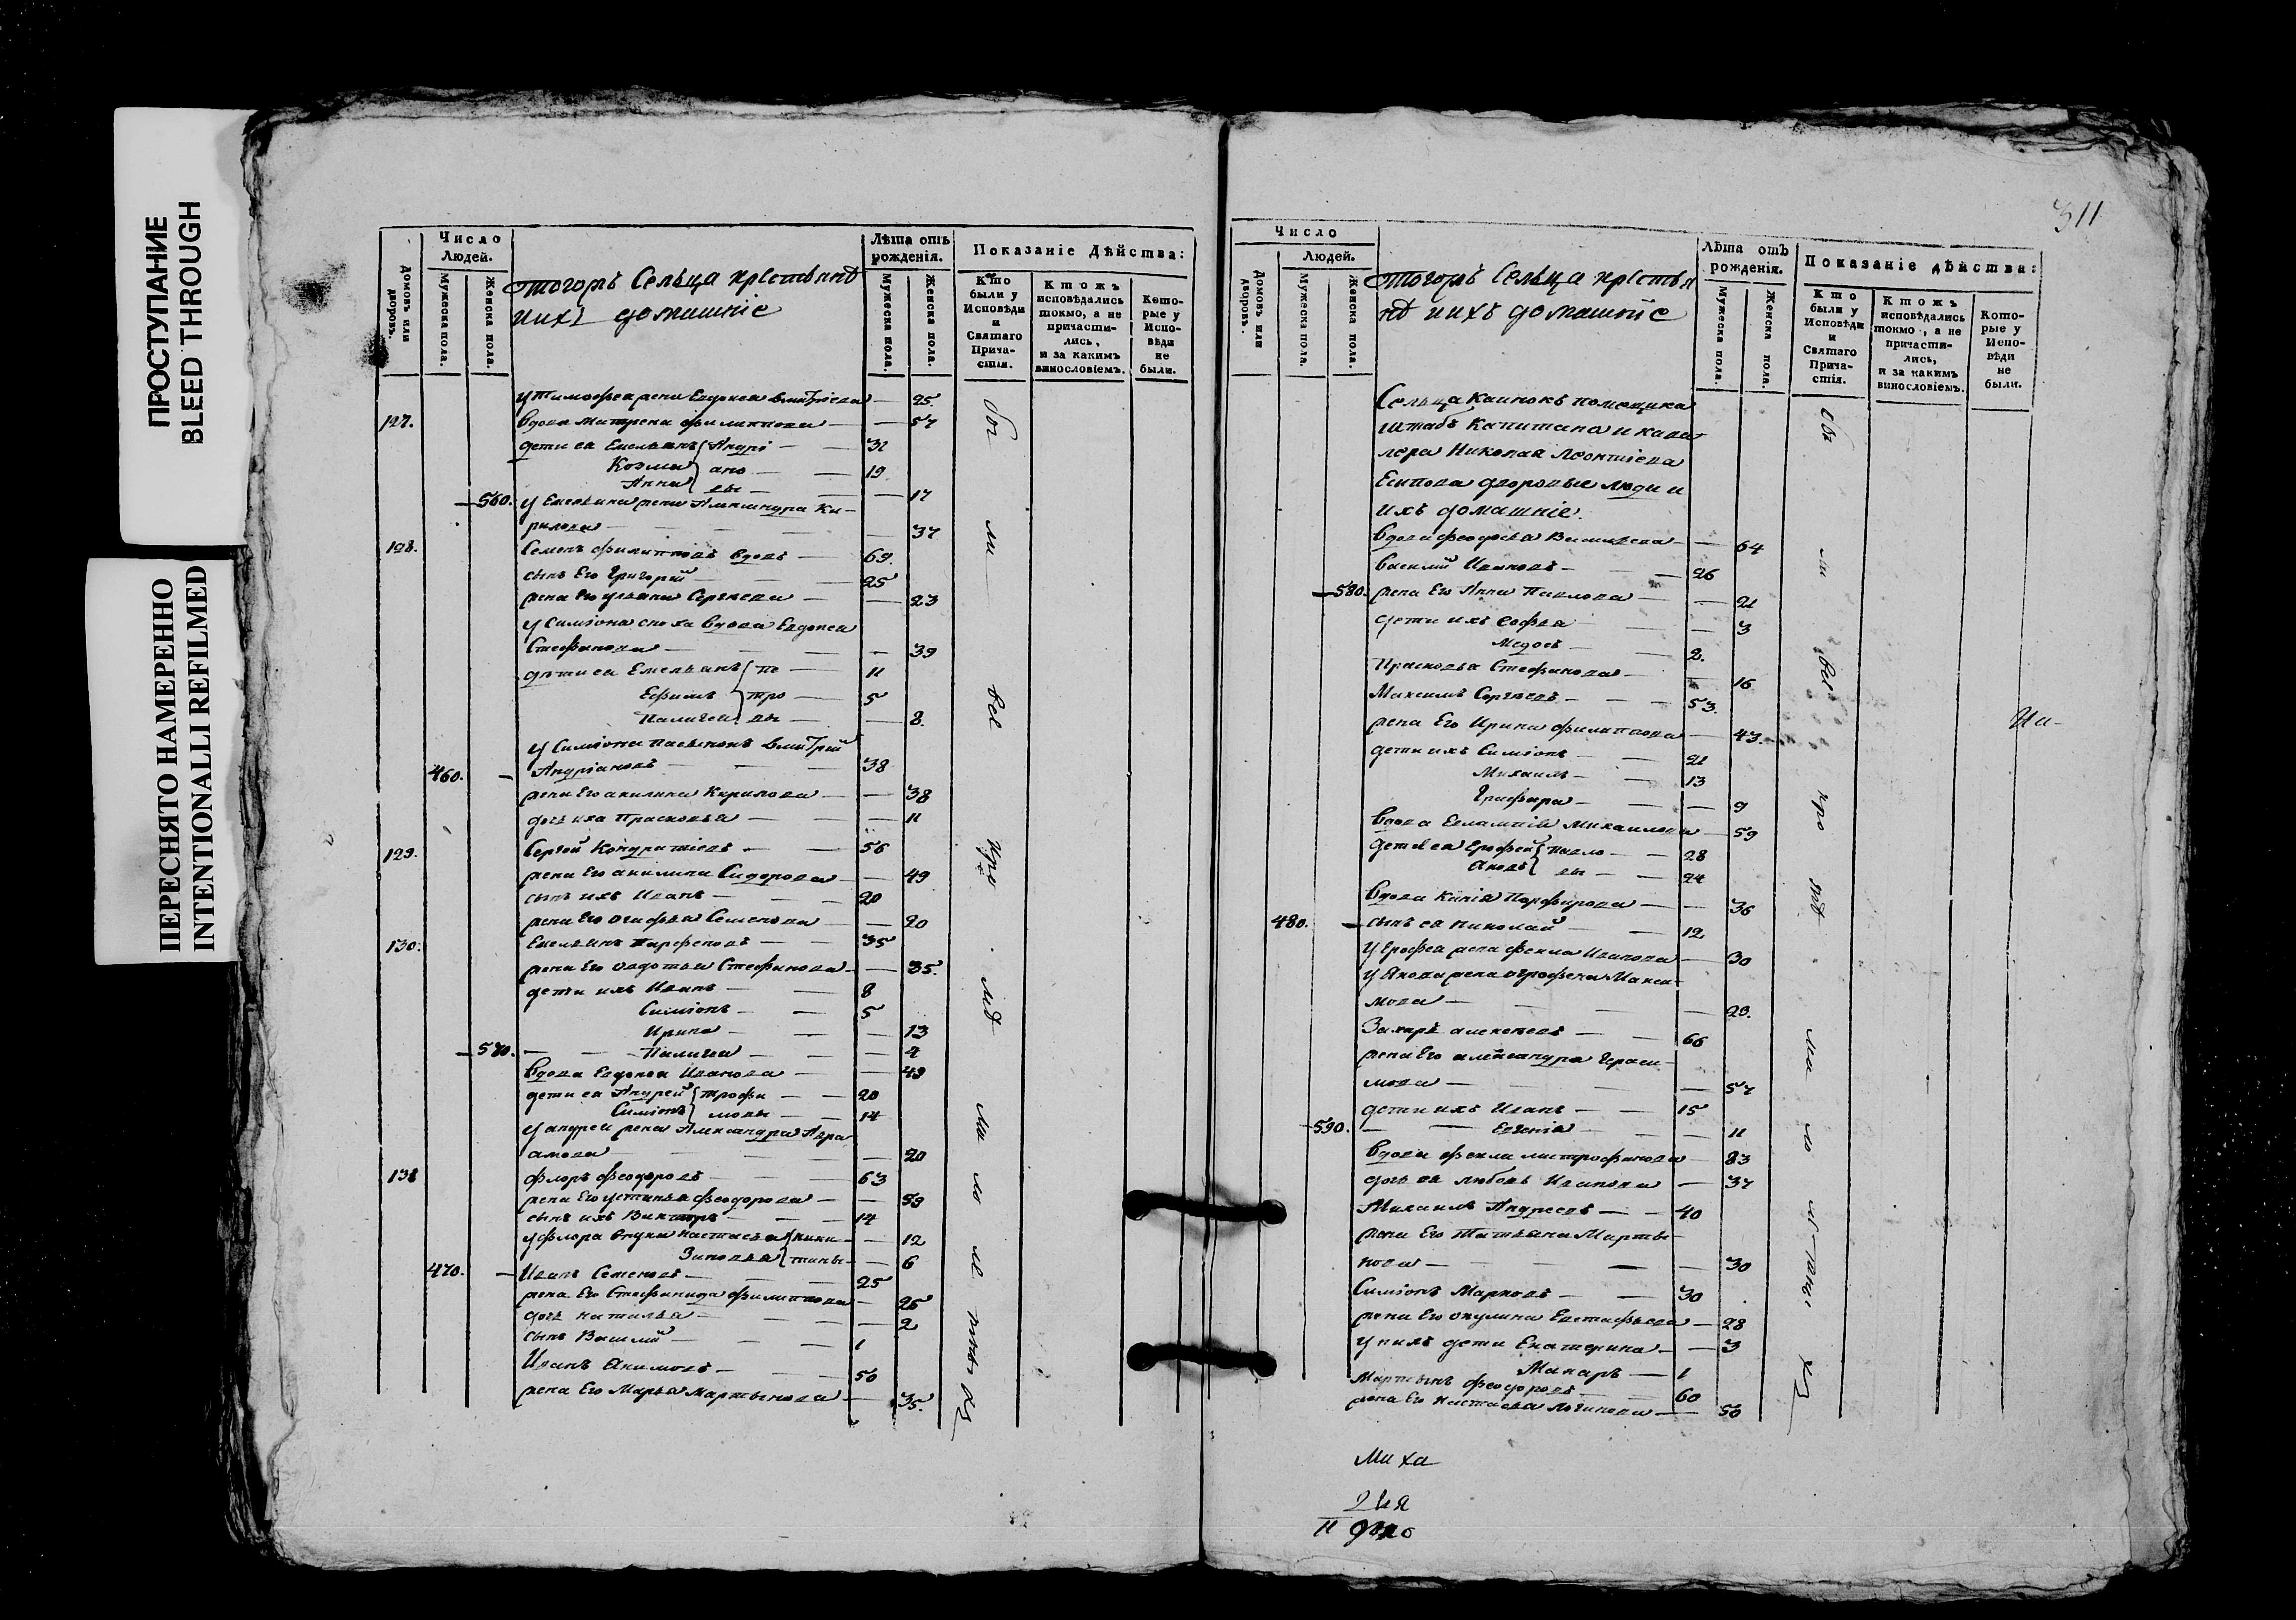 ПРОСТУПАНИЕ
BLEED THROUGH
ПЕРЕСНЯТО НАМЕРЕННО
INTENTIONALLI REFILMED
Число
Людей.
Домовъ или дворовъ.
Мужеска пола.
Женска пола.
тогожъ Сельца крестьянѣ
ииxъ домашніе
Лѣта отъ рождения.
Мужеска пола.
Женска пола.
Показаніе Дѣйства:
Кто были у Исповѣди и Святаго Прича-стія.
Ктожъ исповѣдались токмо, а не причасти-лись, и за какимъ винословіемъ.
Кото-рые у Испо-вѣди не были.
у Тимофея жена Евдокея Дмитріева — 25.
127. вдова Матрена Филиппова — 57
дети ея Емельянъ Андрі — 32
Козма ано — 19
Анна вы — 17
560. у Емельяна жена Александра Ки-
рилова — 37
128. Семенъ Филипповъ вдовъ — 69.
сынъ Его Григорій — 25
жена Его Ульяна Сергеева — 23
у Симіона сноха вдова Евдокея
Стефанова — 39
дѣти ея Емельянъ пе — 11
Ефимъ тро — 5
Палагея вы — 8.
у Симіона пасынокъ Дмитрій
460. Андріановъ — 38
жена Его акилина Кирилова — 38
дочь ихъ Прасковья — 11
129. Сергей Кондратіевъ — 56
жена Его акилина Сидорова — 49
сынъ ихъ Иванъ — 20
жена Его агафья Семенова — 20
130. Емельянъ Парфеновъ — 35
жена Его авдотья Стефанова — 35.
дети ихъ Иванъ — 8
Симіонъ — 5
Ирина — 13
570. Палагея — 4
вдова Евдокея Иванова — 49
дети ея Андрей трофи — 20
Симіонъ мовы — 14
у андрея жена Александра Авра
амова — 20
131 Флоръ Феодоровъ — 63
жена Его устинья Феодорова — 59
сынъ ихъ Викторъ — 14
у Флора внуки Настасья ники — 12
Зиновья тины — 6
470. Иванъ Семеновъ — 25
жена Его Стефанида Филиппова — 25
дочь наталья — 2
сынъ Василій — 1
Иванъ Акимовъ — 50
жена Его Марья Мартынова — 35.
311
Число
Людей.
Домовъ или дворовъ.
Мужеска пола.
Женска пола.
тогожъ Сельца крестья
нѣ ииxъ домашніе
Лѣта отъ рождения.
Мужеска пола.
Женска пола.
Показаніе дѣйства:
Кто были у Исповѣди и Святаго Прича-стія.
Ктожъ исповѣдались токмо, а не причасти-лись, и за какимъ винословіемъ.
Кото-рые у Испо-вѣди не были.
Сельца помещика
штабъ Капитана и кава
лера Николая Леонтіева
Есипова дворовые люди и
ихъ домашніе.
вдова Феодосья Васильева — 64
Василий Ивановъ — 26
580. жена Его Анна Павлова — 21
дети ихъ Софья — 3
— 2.
Прасковья Стефанова — 16
Максимъ Сергеевъ — 53.
жена Его Ирина Филиппова — 43.
дети ихъ Симіонъ — 21
Михаилъ — 13
Глафира — 9
вдова Евлампія Михаилова — 59
дети ея Ерофей павло — 28
Яковъ вы — 24
вдова Порфирова — 36
480. сынъ ея николай — 12
у Ерофея жена Фекла Иванова — 30
у Якова жена агрофена Макси
мова — 29.
Захаръ алексеевъ — 66
жена Его александра Гераси
мова — 57
дети ихъ Иванъ — 15
590. Евгенія — 11
вдова Фекла митрофанова — 83
дочь ея любовь Иванова — 37
Михаилъ Андреевъ — 40
жена Его Татьяна Марты
нова — 30
Симіонъ Марковъ — 30
жена Его акулина Евстафьева — 28
у нихъ дети Екатерина — 3
Макаръ — 1
Мартынъ Феодоровъ — 60
жена Его настасья Логинова — 50
Миха